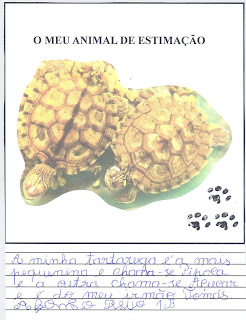 O MEU ANIMAL DE ESTIMAÇÃO
A minha tartaruga é a mais
pequenina e chama-se Pipoca
e a outra chama-se Açucar
e é do meu irmão Tomás
Afonso 1B